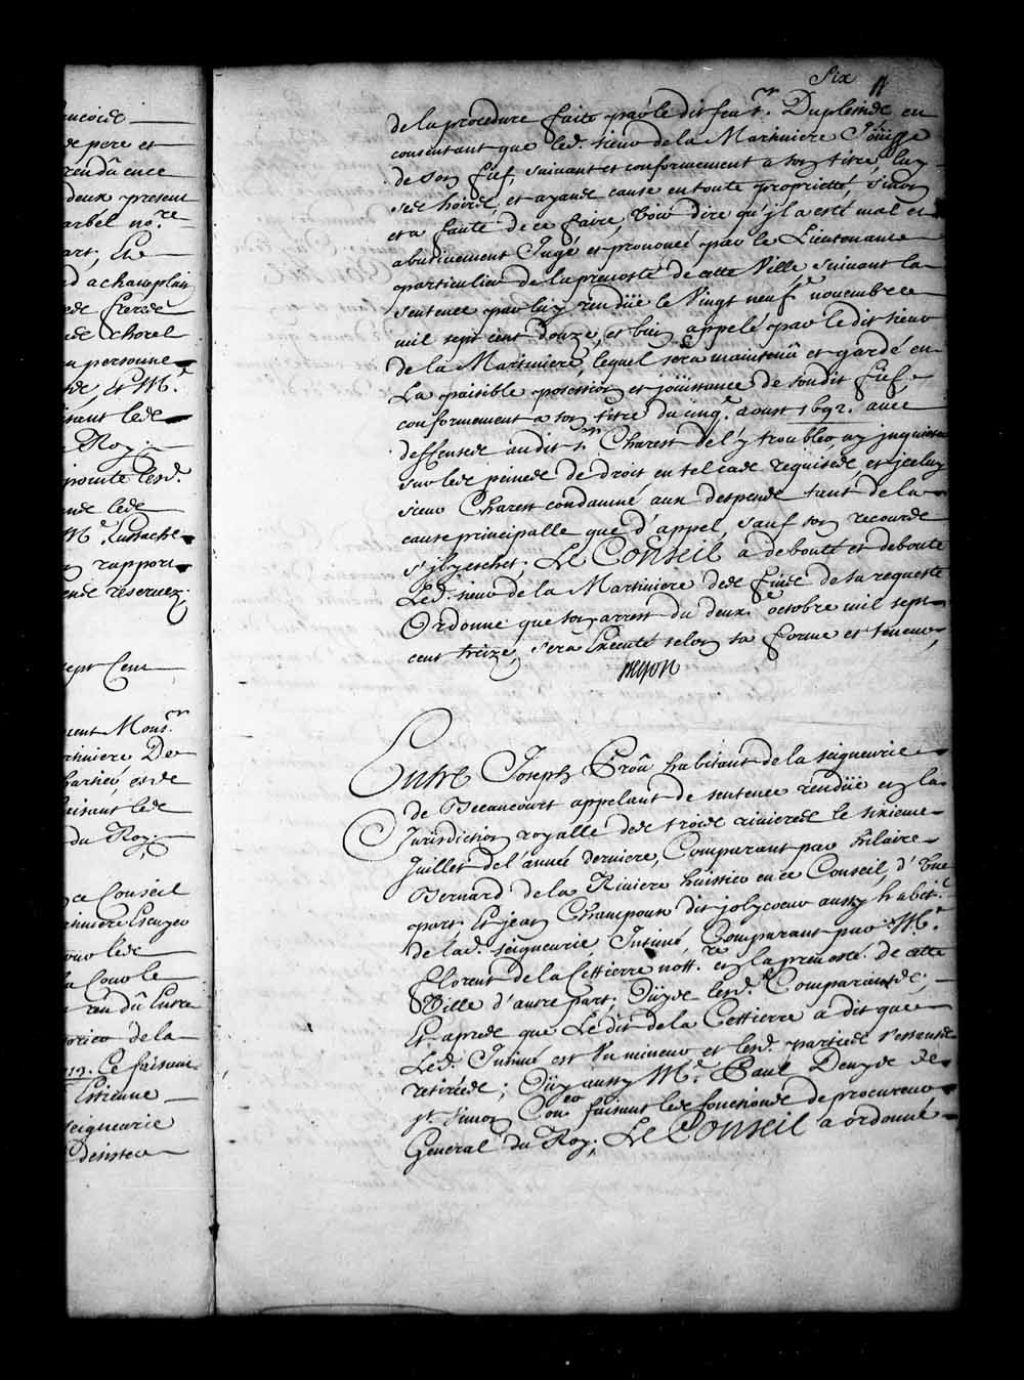 ancoise
de pere et
rendu ence
deux present
arbél no.re
art, Et
d a champlain
de freres
de chorel
personne
de, Et M.e
isant les
Roy;
pointe lesd.
les
M.e Eustache
rapport
reservez.
sept Cent
Mons.r
tiniere De
hartier, et de
aisant les
du Roy;
ce Conseil
tiniere Escuyer
pour les
la Cour le
rendu Entre
de la
1713. Ce faisant
Estienne
seigneurie
Desister
Six
11
de la procedure faite par le dit feu s.r Duplessis en
consentant que led. sieur de la Martiniere Joüisse
de son fief, suivant et conformement a son titre luy
ses hoirs, et ayans cause en toute proprietté, sinon
et a fauté de ce faire, Voir dire qu'jl a esté mal et
abusivement Jugé et prononcé par le Lieutenant
particulier de la prevosté de cette Ville, suivant la
sentence par luy rendüe le Vingt neuf.e novembre
mil sept cent douze, et bien appelé par le dit sieur
de la Martiniere, lequel sera maintenû et gardé en
La paisible possession et joüissance de soudit fief,
conformement a son titre du cinq.e aoust 1692. avec
deffenses audit s.r Charest de l'y troubler, ny jnquieter
sur les peines de droit en tel cas requises, et jceluy
sieur Charest condamné aux despens tant de la
cause principalle que d'appel, sauf son recours
s'jl y eschet; Le Conseil a debouté et deboute
Led. sieur de la Martiniere des fins de sa requeste
Ordonne que son arrest du deux.e octobre mil sept
cent treize, sera Executé selon sa forme et teneur,
Begon
Entre Joseph Proû habitant de la seigneurie
de Becancourt appelant de sentence rendüe en la
Jurisdiction royalle des trois rivieres le sixieme
Juillet de l'année derniere, Comparant par hilaire
Bernard de la Riviere huissier en ce Conseil, d'Une
part; Et jean Champoux dit jolycoeur aussy habit.t
de lad. seigneurie Intimé, Comparant par M.e
Florent de la Cettierre nott.re en la prevosté de cette
Ville d'autre part; Oüys lesd. Comparants;
Et apres que Le dit de la Cettierre a dit que
Led. Intimé est Un mineur et lesd. parties s'estant
retirées; Oüy aussy M.e Paul Denys de
s.t Simon Con.er faisant les fonctions de procureur
General du Roy; Le Conseil a ordonné